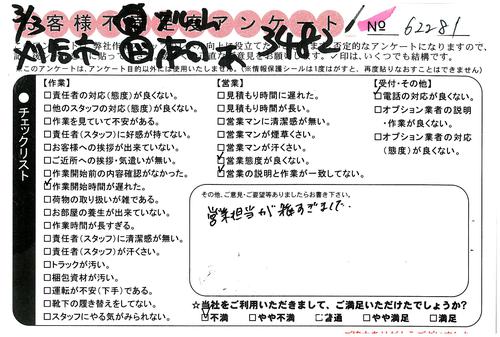 お客様不満足度アンケート
№ 62281
3/3
3482
チェックリスト
【作業】
□責任者の対応(態度)が良くない。
□他のスタッフの対応(態度)が良くない。
□作業を見ていて不安がある。
□責任者(スタッフ)に好感が持てない。
□お客様への挨拶が出来ていない。
□ご近所への挨拶・気遣いが無い。
□作業開始前の内容確認がなかった。
☑作業開始時間が遅れた。
□荷物の取り扱いが雑である。
□お部屋の養生が出来ていない。
□作業時間が長すぎる。
□責任者(スタッフ)に清潔感が無い。
□責任者(スタッフ)が汗くさい。
□トラックが汚い。
□梱包資材が汚い。
□運転が不安(下手)である。
□靴下の履き替えをしてない。
□スタッフにやる気がみられない。
【営業】
□見積もり時間に遅れた。
□見積もり時間が長い。
□営業マンに清潔感が無い。
□営業マンが煙草くさい。
□営業マンが汗くさい。
☑営業態度が良くない。
☑営業の説明と作業が一致してない。
【受付・その他】
☑電話の対応が良くない。
□オプション業者の説明
・作業が良くない。
□オプション業者の対応
(態度)が良くない。
その他、ご意見・ご要望等ありましたらお書き下さい。
営業担当が雑すぎました
☆当社をご利用いただきまして、ご満足いただけたでしょうか?
☑不満 □やや不満 □普通 □やや満足 □満足